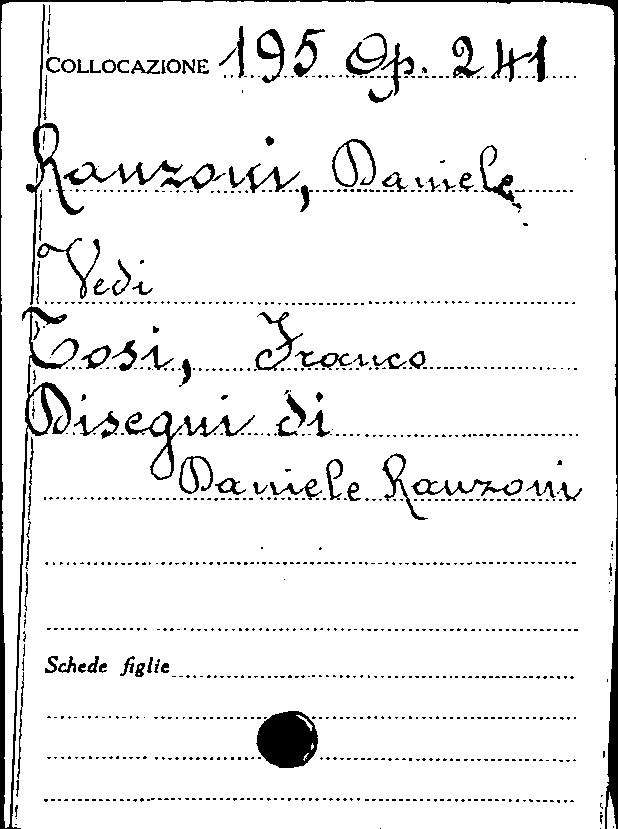 COLLOCAZIONE 195 Op. 241
Ranzoni, Daniele
Vedi
Tosi, Franco
Disegni di
Daniele Ranzoni
Schede figlie